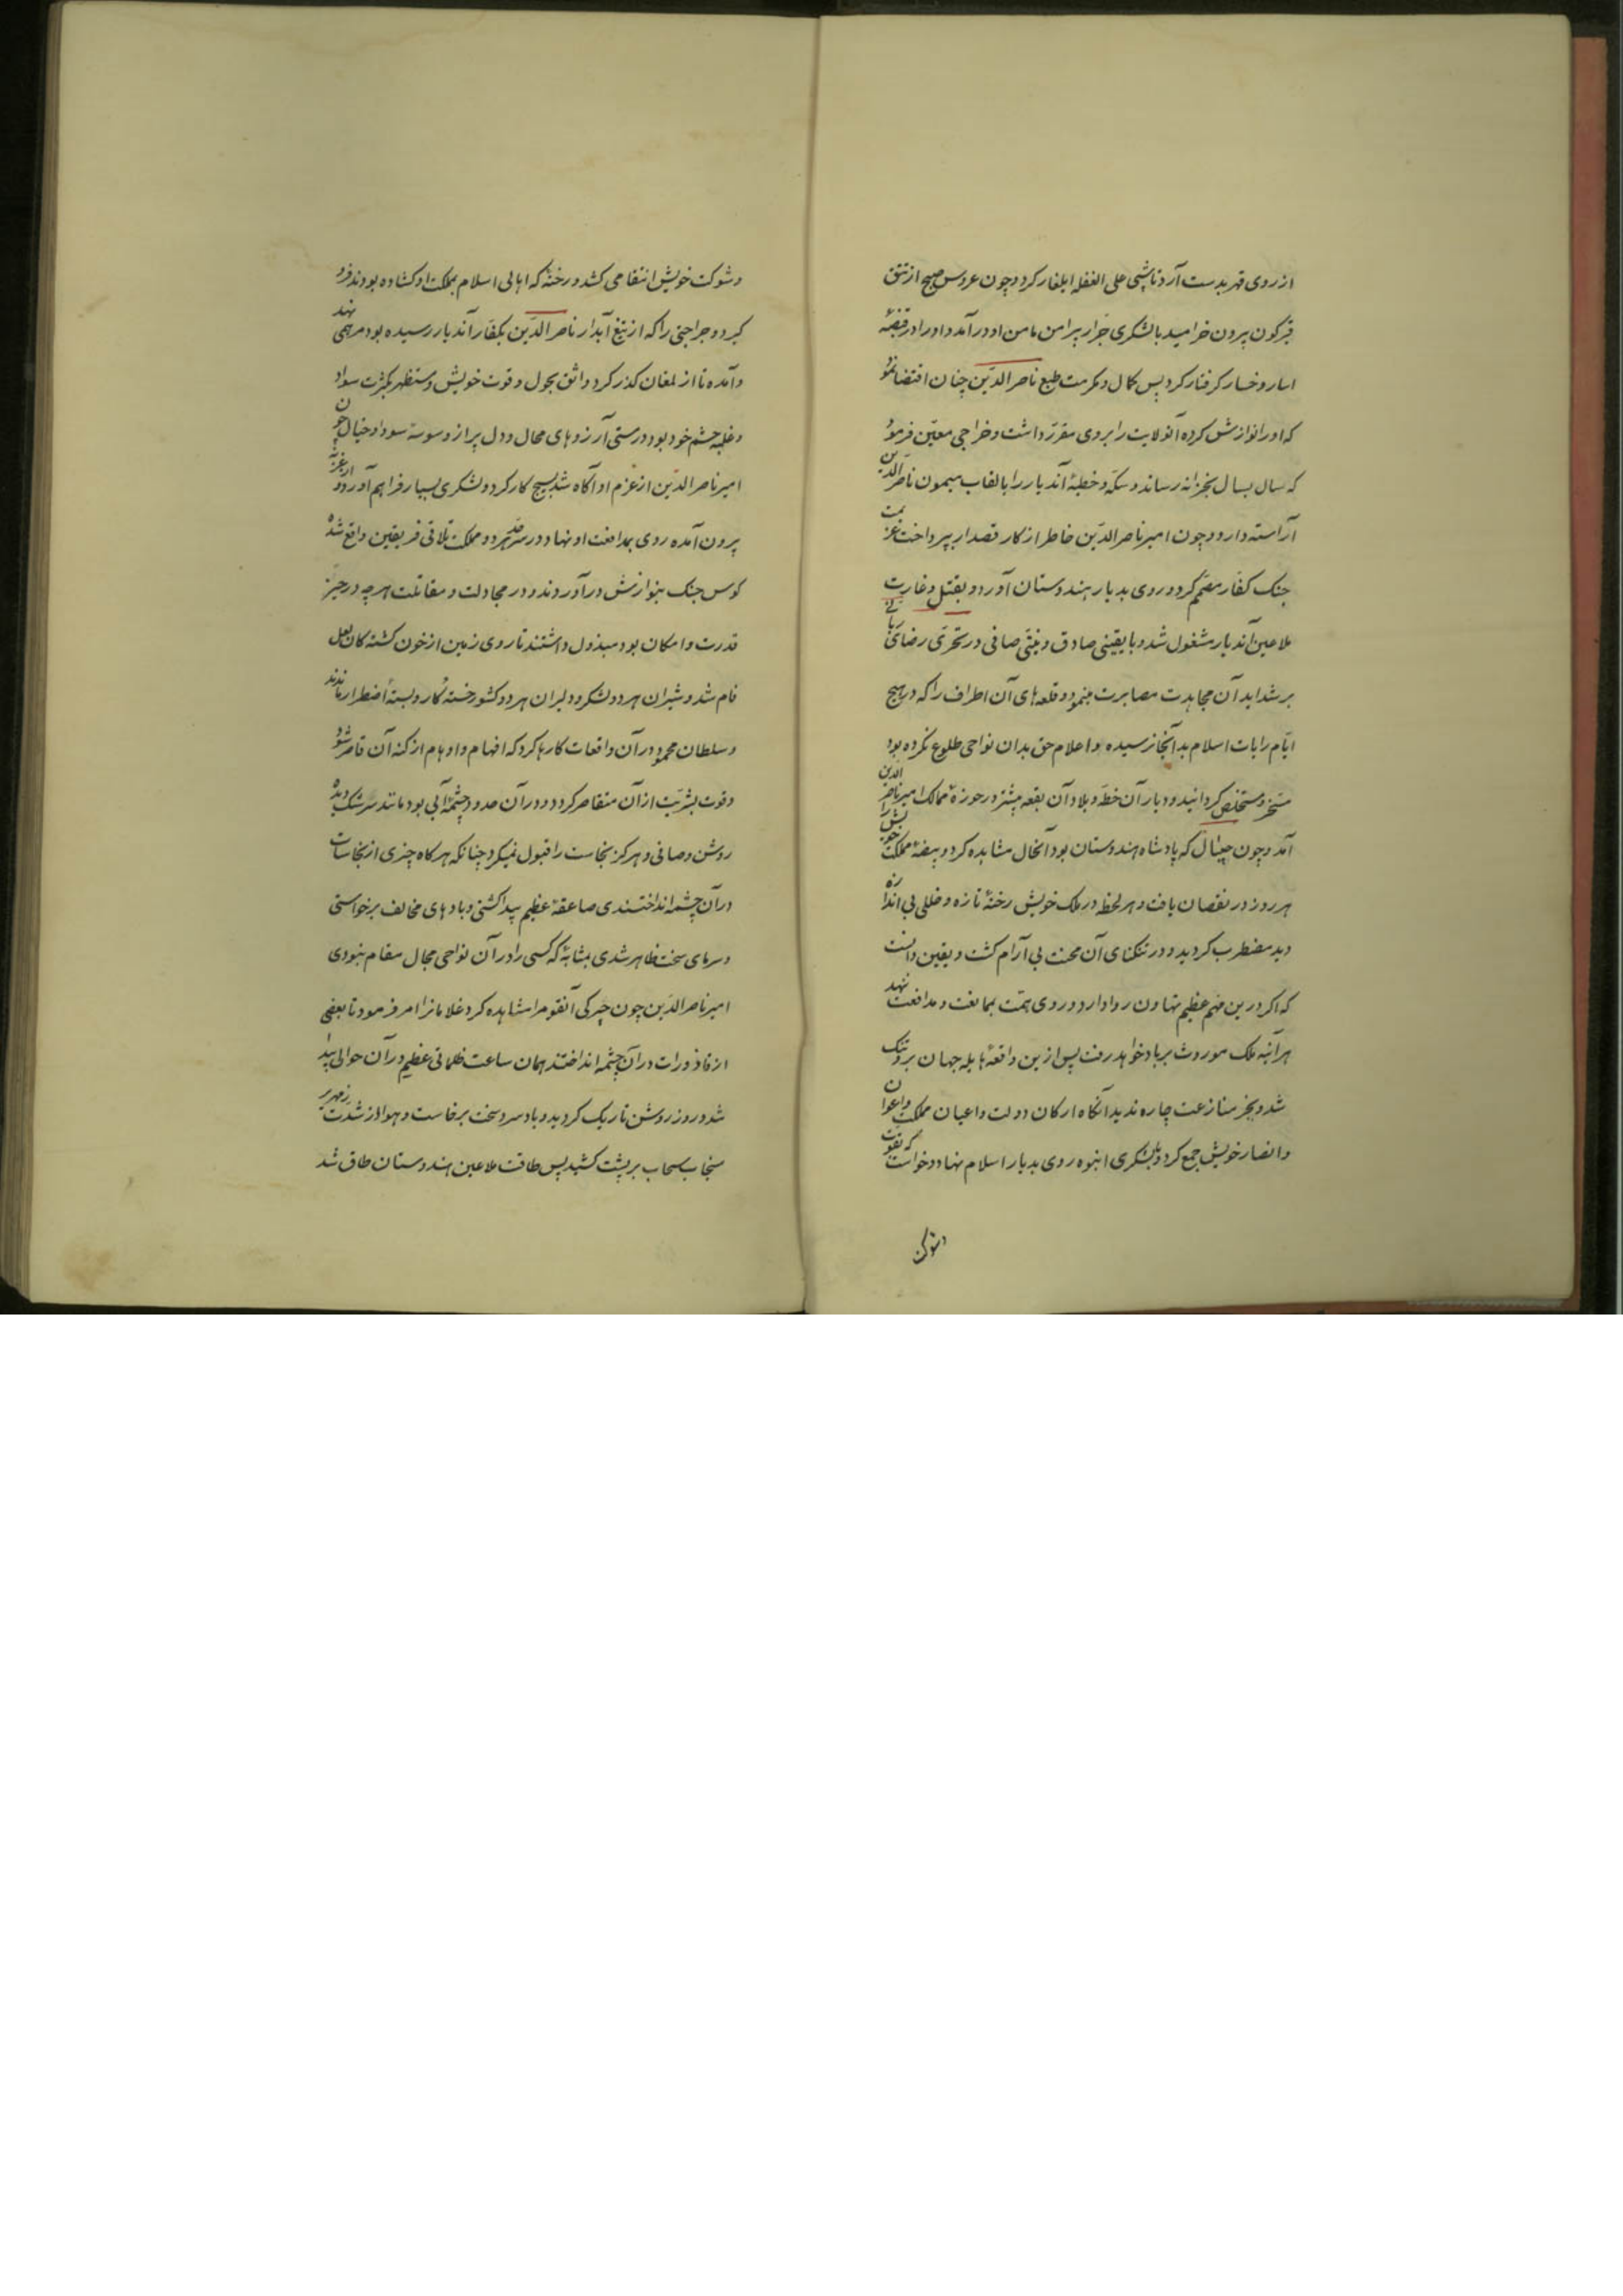 از روی قهر بدست آرد تا شبی علی الغفله ایلغار کرد و چون عروس صبح از تتق
قیرکون بیرون خرامید با لشکری جرّار پیرامن مامن او در آمد و او را در قبضهٔ
اسار و خسار گرفتار کرد پس کمال و مکرمت طبع ناصر الدّین چنان اقتضا نمود
که او را نوازش کرده آنولایت را بر وی مقرّر داشت و خراجی معیّن فرمود
که سال بسال بخزانه رساند و سکّه و خطبهٔ آندیار را بالقاب میمون ناصر الدّین
آراسته دارد و چون امیر ناصر الدّین خاطر از کار قصدار بپرداخت عزیمت
جنک کفّار مصمّم کرد و روی بدیار هندوستان آورد و بقتل و غارت
ملاعین آندیار مشغول شد و با یقینی صادق و نیّتی صافی در تحرّی رضای
بر شداید آن مجاهدت مصابرت مینمود و قلعه های آن اطراف را که در هیچ
ایّام رایات اسلام بدانجا نرسیده و اعلام حق بدان نواحی طلوع نکرده بود
مسخّر و مستخلص گردانید و دیار آن خطّه و بلاد آن بقعه بیشتر در حوزهٔ ممالک امیر ناصر الدین
آمد و چون جیپال که پادشاه هندوستان بود آنحال مشاهده کرد و بیضهٔ مملکت خویش را
هر روز در نقصان یافت و هر لحظه در ملک خویش رخنهٔ تازه و خللی بی اندازه
دید مضطرب گردید و در تنکنای آن محنت بی آرام کشت و یقین دانست
که اکر درین مهم عظیم تهاون روا دارد و روی همّت بممانعت و مدافعت ننهد
هر آینه ملک موروث بر باد خواهد رفت پس ازین واقعهٔ هایله جهان برو تنک
شد و بجز منازعت چاره ندید آنکاه ارکان دولت و اعیان مملکت و اعوان
و انصار خویش جمع کرد و با لشکری انبوه روی بدیار اسلام نهاد و خواست که بقوت
و شوکت
و شوکت خویش انتقامی کشد و رخنهٔ که اهالی اسلام بمملکت او کشاده بودند فرو
کیرد و جراحتی را که از تیغ آبدار ناصر الدّین بکفّار آندیار رسیده بود مرهمی نهد
و آمده تا از لمغان کذر کرد واثق بحول و قوت خویش و مستظهر بکثرت سواد
و غلبه حشم خود بود و در مستی آرزوهای محال و دل پر از وسوسهٔ سودا و خیال چون
امیر ناصر الدین از عزم او آکاه شد بسیج کار کرد و لشکری بسیار فراهم آورد و از غزنه
بیرون آمده روی بمدافعت او نهاد و در سرحد هر دو مملکت تلاقی فریقین واقع شده
کوس جنک بنوازش در آوردند و در مجادلت و مقاتلت هر چه در حیّز
قدرت و امکان بود مبذول داشتند تا روی زمین از خون کشته کان لعل
فام شد و شیران هر دو لشکر و دلیران هر دو کشور خستهٔ کار و بستهٔ اضطرار ماندند
و سلطان محمود در آن واقعات کارها کرد که افهام و اوهام از کنه آن قاصر شود
و قوت بشریّت از آن متقاصر کردد و در آن حدود چشمهٔ آبی بود مانند سرشک دیده
روشن و صافی و هرکز نجاست را قبول نمیکرد چنانکه هرکاه چیزی از نجاسات
در آن چشمه انداختندی صاعقهٔ عظیم پیدا کشتی و بادهای مخالف برخواستی
و سرمای سخت ظاهر شدی بمثابهٔ که کسی را در آن نواحی مجال مقام نبودی
امیر ناصر الدّین چون چیرکی آنقوم را مشاهده کرد غلامانرا امر فرمود تا بعضی
از قاذورات در آن چشمه انداختند همان ساعت ظلماتی عظیم در آن حوالی پیدا
شد و روز روشن تاریک کردید و باد سرد سخت برخاست و هوا از شدت زمهریر
سنجاب سحاب بر پشت کشید پس طاقت ملاعین هندوستان طاق شد